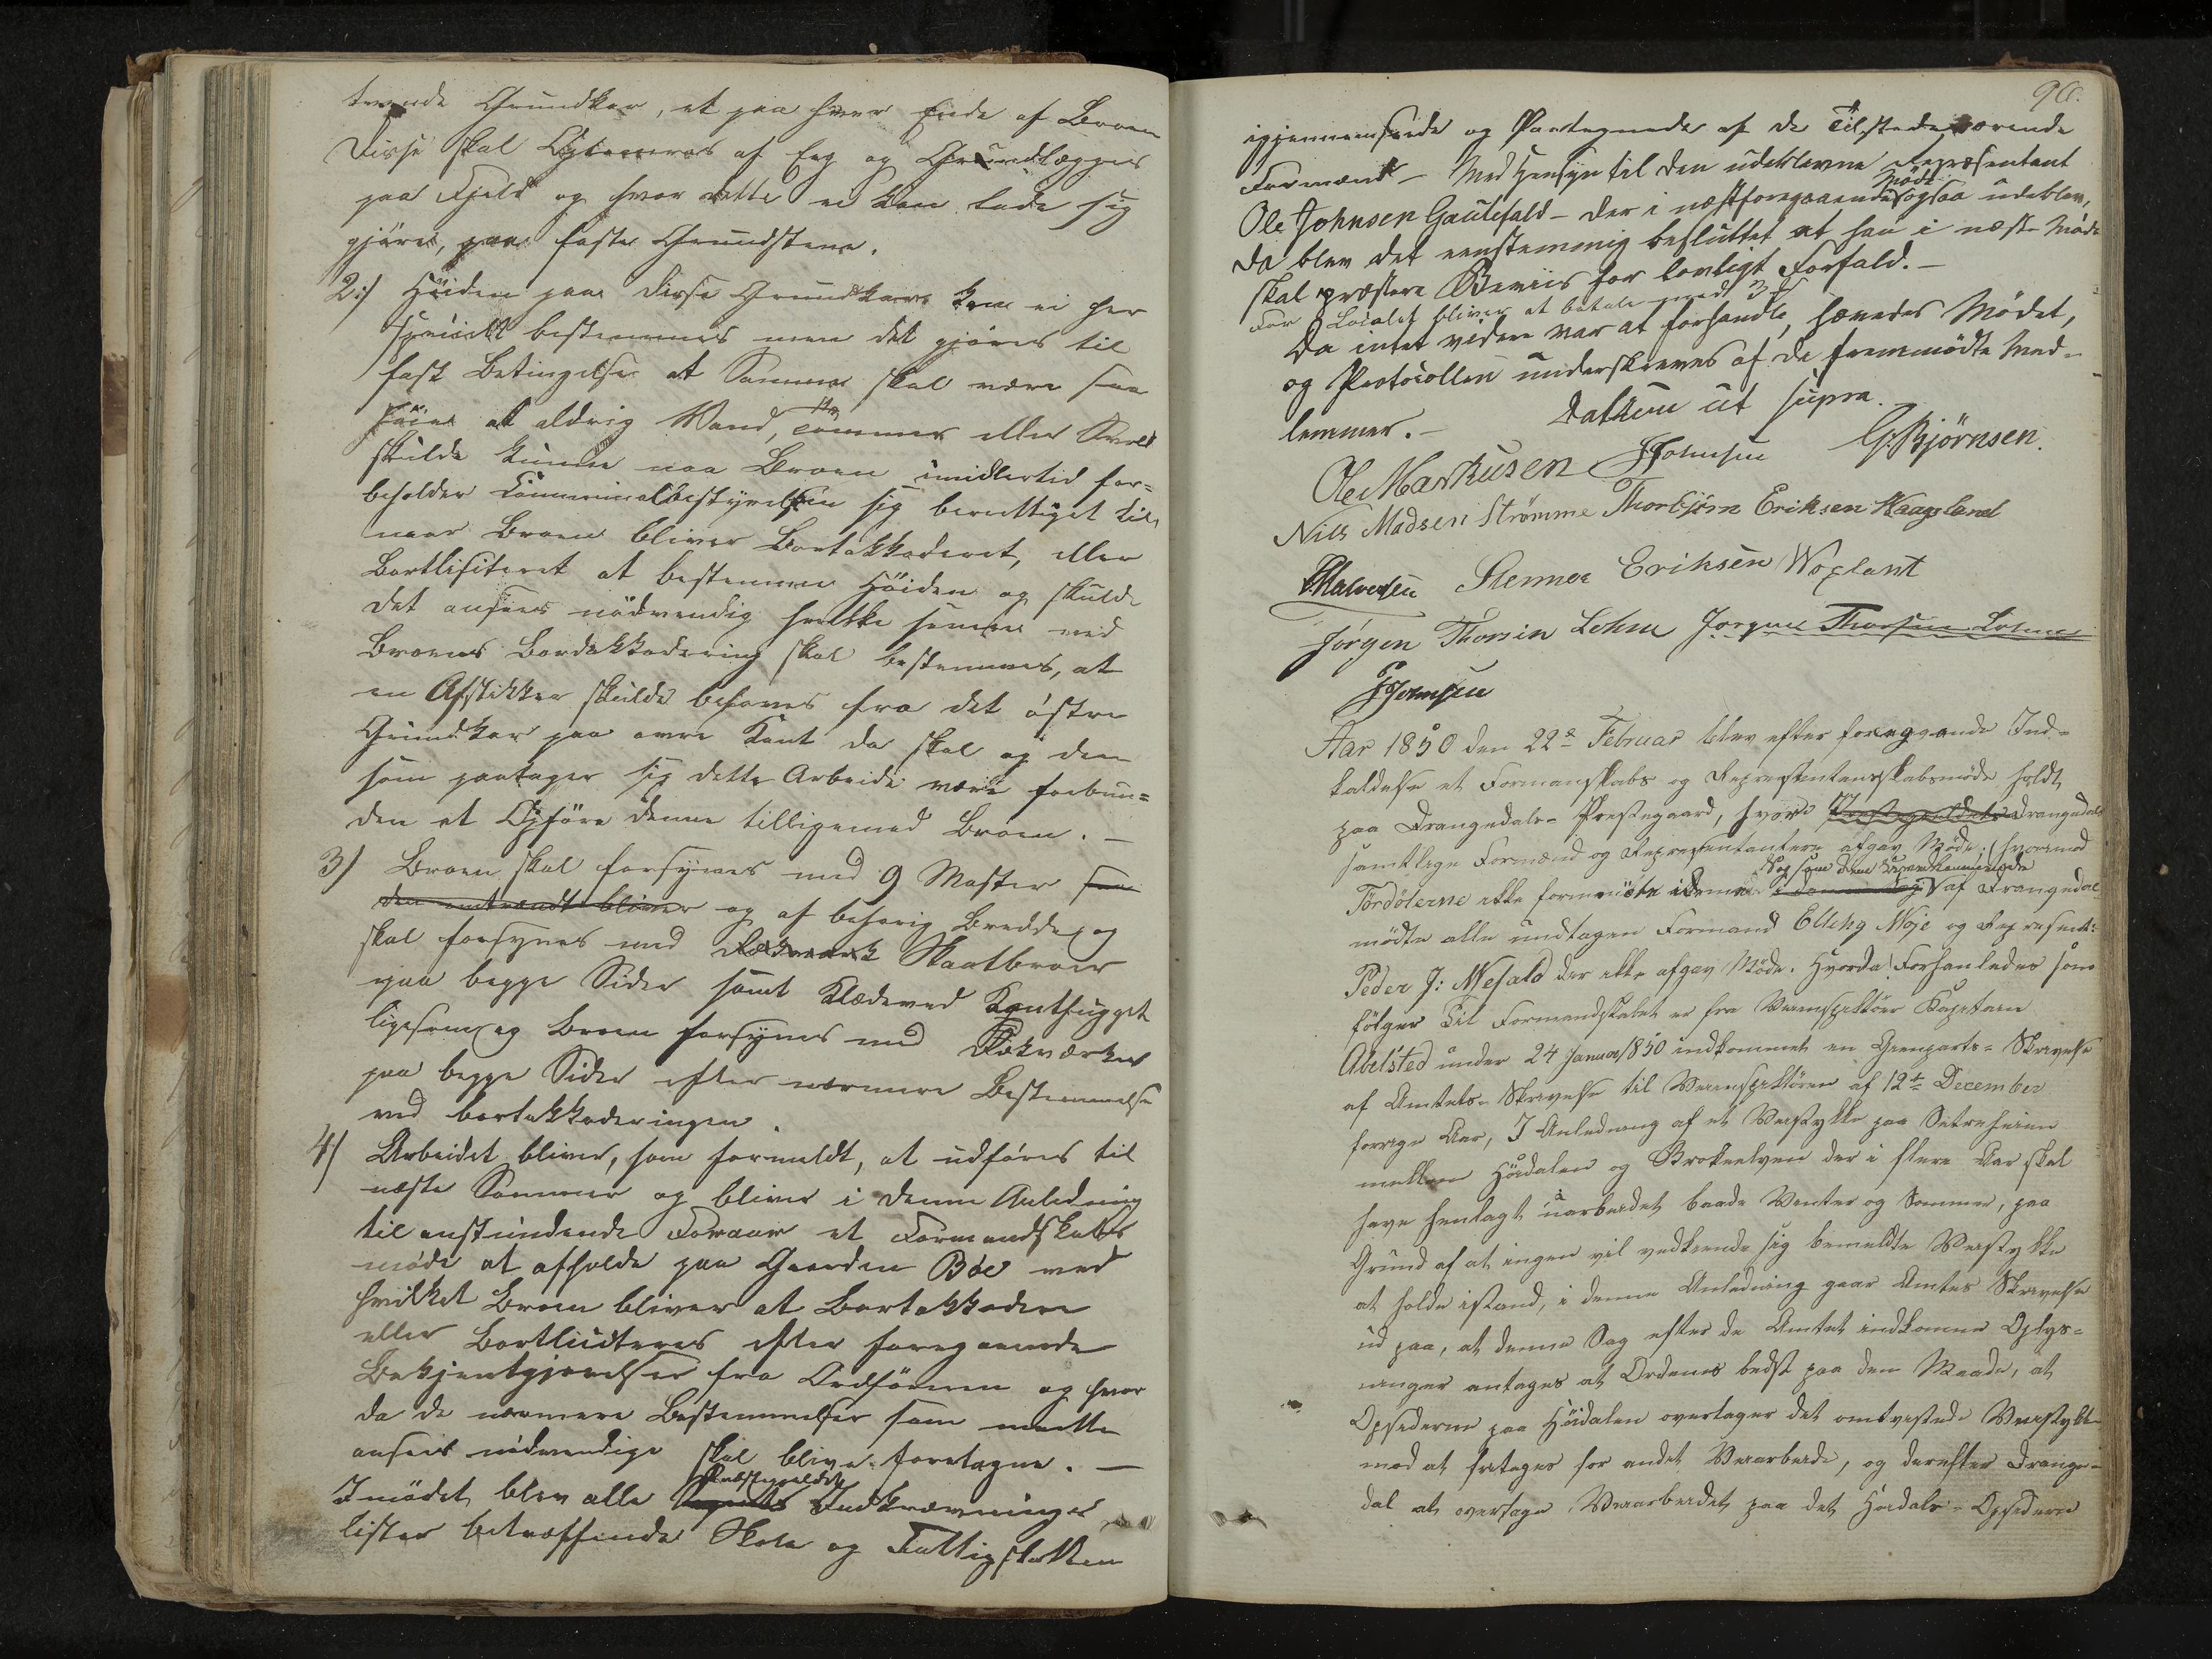 tvende Grundkar, et paa hver Ende af Broen
Disse skal Optømres af Eeg og Grundlægges
paa Fjeld og hvor dette ei kan lade sig
gjøres, paa faste Grundstene.
2:/ Høiden paa disse Grundkare kan ei her
specielt bestemmes men det gjøres til
fast Betingelse at Samme skal være saa
høie at aldrig Vand, Tømmer eller
skulde kunne naa Broen imidlertid for=
beholder Communalbestyrelsen sig berettiget til
naar Broen bliver Bortakkoderet, eller
Bortlisiteret at bestemme Høiden og skulde
det ansees nødvendig hvilke senere ved
Broens Bordakkodering skal bestemmes, at
en Afstikker skulde behøves fra det østre
Grundkar paa øvre Kant da skal og den
som paatager sig dette Arbeide være forbun=
den at Opføre denne tilligemed Broen. —
3/ Broen skal forsynes med 9 Master saa
den omtrændt bliver og af behørig Bredde og
skal forsynes med Skaatbroer
paa begge Sider samt Klædeved Kanthugget
ligesom og Broen forsynes med Rækværker
paa begge Sider efter nærmere Bestemmelse
ved bortakkoderingen.
4/ Arbeidet bliver, som formeldt, at udføres til
næste Sommer og bliver i denne Anledning
til anstundende Foraar et Formandskabs
møde at afholde paa Gaarden Bøe ved
hvilket Broen bliver at Bortakkodere
eller Bortliciteres efter foregaaende
Bekjentgjørelser fra Ordføreren og hvor
da de nærmere Bestemmelser som maatte
ansees nødvendige skal blive foretagne. —
I mødet blev alle Præstegjeldets Indkrævnings
lister betræffende Skole og Fattigskatten
90.
igjennemseede og Paategnede af de Tilstedeværende
Formænd — Med Hensyn til den udeblevne Repræsentant
Ole Johnsen Gautefald — der i næstforegaaende Møde ogsaa udeblev,
da blev det eenstemmig besluttet at han i næste Møde
skal præstere Beviis for lovligt Forfald. —
For Localet bliver at betale med 3
Da intet videre var at forhandle, hævedes Mødet,
og Protocollen underskreves af de fremmødte Med=
lemmer. — Datum ut supra.
Ole Markusen JJohnsen G. Bjørnsen.
Niels Madsen Strømme Thorbjørn Eriksen Haagsland
Halvorsen Stenner Eriksen Woplant
Jørgen Thorsin Lohne Jørgen Thorsen Lohne
JJohnsen
Aar 1850 den 22de Februar blev efter foregaaende Ind=
kaldelse et Formanskabs og Representanskabsmøde holdt
paa Drangedals= Prestegaard, hvor Prestegjeldets Drangedals
samtlige Formænd og Representantere afgav Møde. (hvorimod
Tørdølerne ikke fremmødte i denne Sag som dem uvedkommende af Drangedal
mødte alle undtagen Formand Ellehg Moje og Represent:
Peder J: Wefald der ikke afgav Møde. Hvorda Forhanledes som
følger Til Formandskabet er fra Veiinspektøer Kapitain
Abelsted under 24 Januar 1850 indkommet en Gienparts= Skrivelse
af Amtets= Skrivelse til Veiinspektøren af 12te December
forrige Aar, I Anledning af et Veistykke paa Setreheien
mellem Høidalen og Brokeelven der i flere Aar skal
have henlagt uarbeidet baade Vinter og Sommer, paa
Grund af at ingen vil vedkiende sig bemeldte Veistykke
at holde istand, i denne Anledning gaar Amtes Skrivelse
ud paa, at denne Sag efter de Amtet indkomne Oplys=
ninger antages at Ordenes bedst paa den Maade, at
Opsiderne paa Høidalen overtager det omtvistede Veistykke
mod at fritages for andet Veiarbeide, og derefter Drange=
dal at overtage Veiarbeidet paa det Høidals= Opsiderne